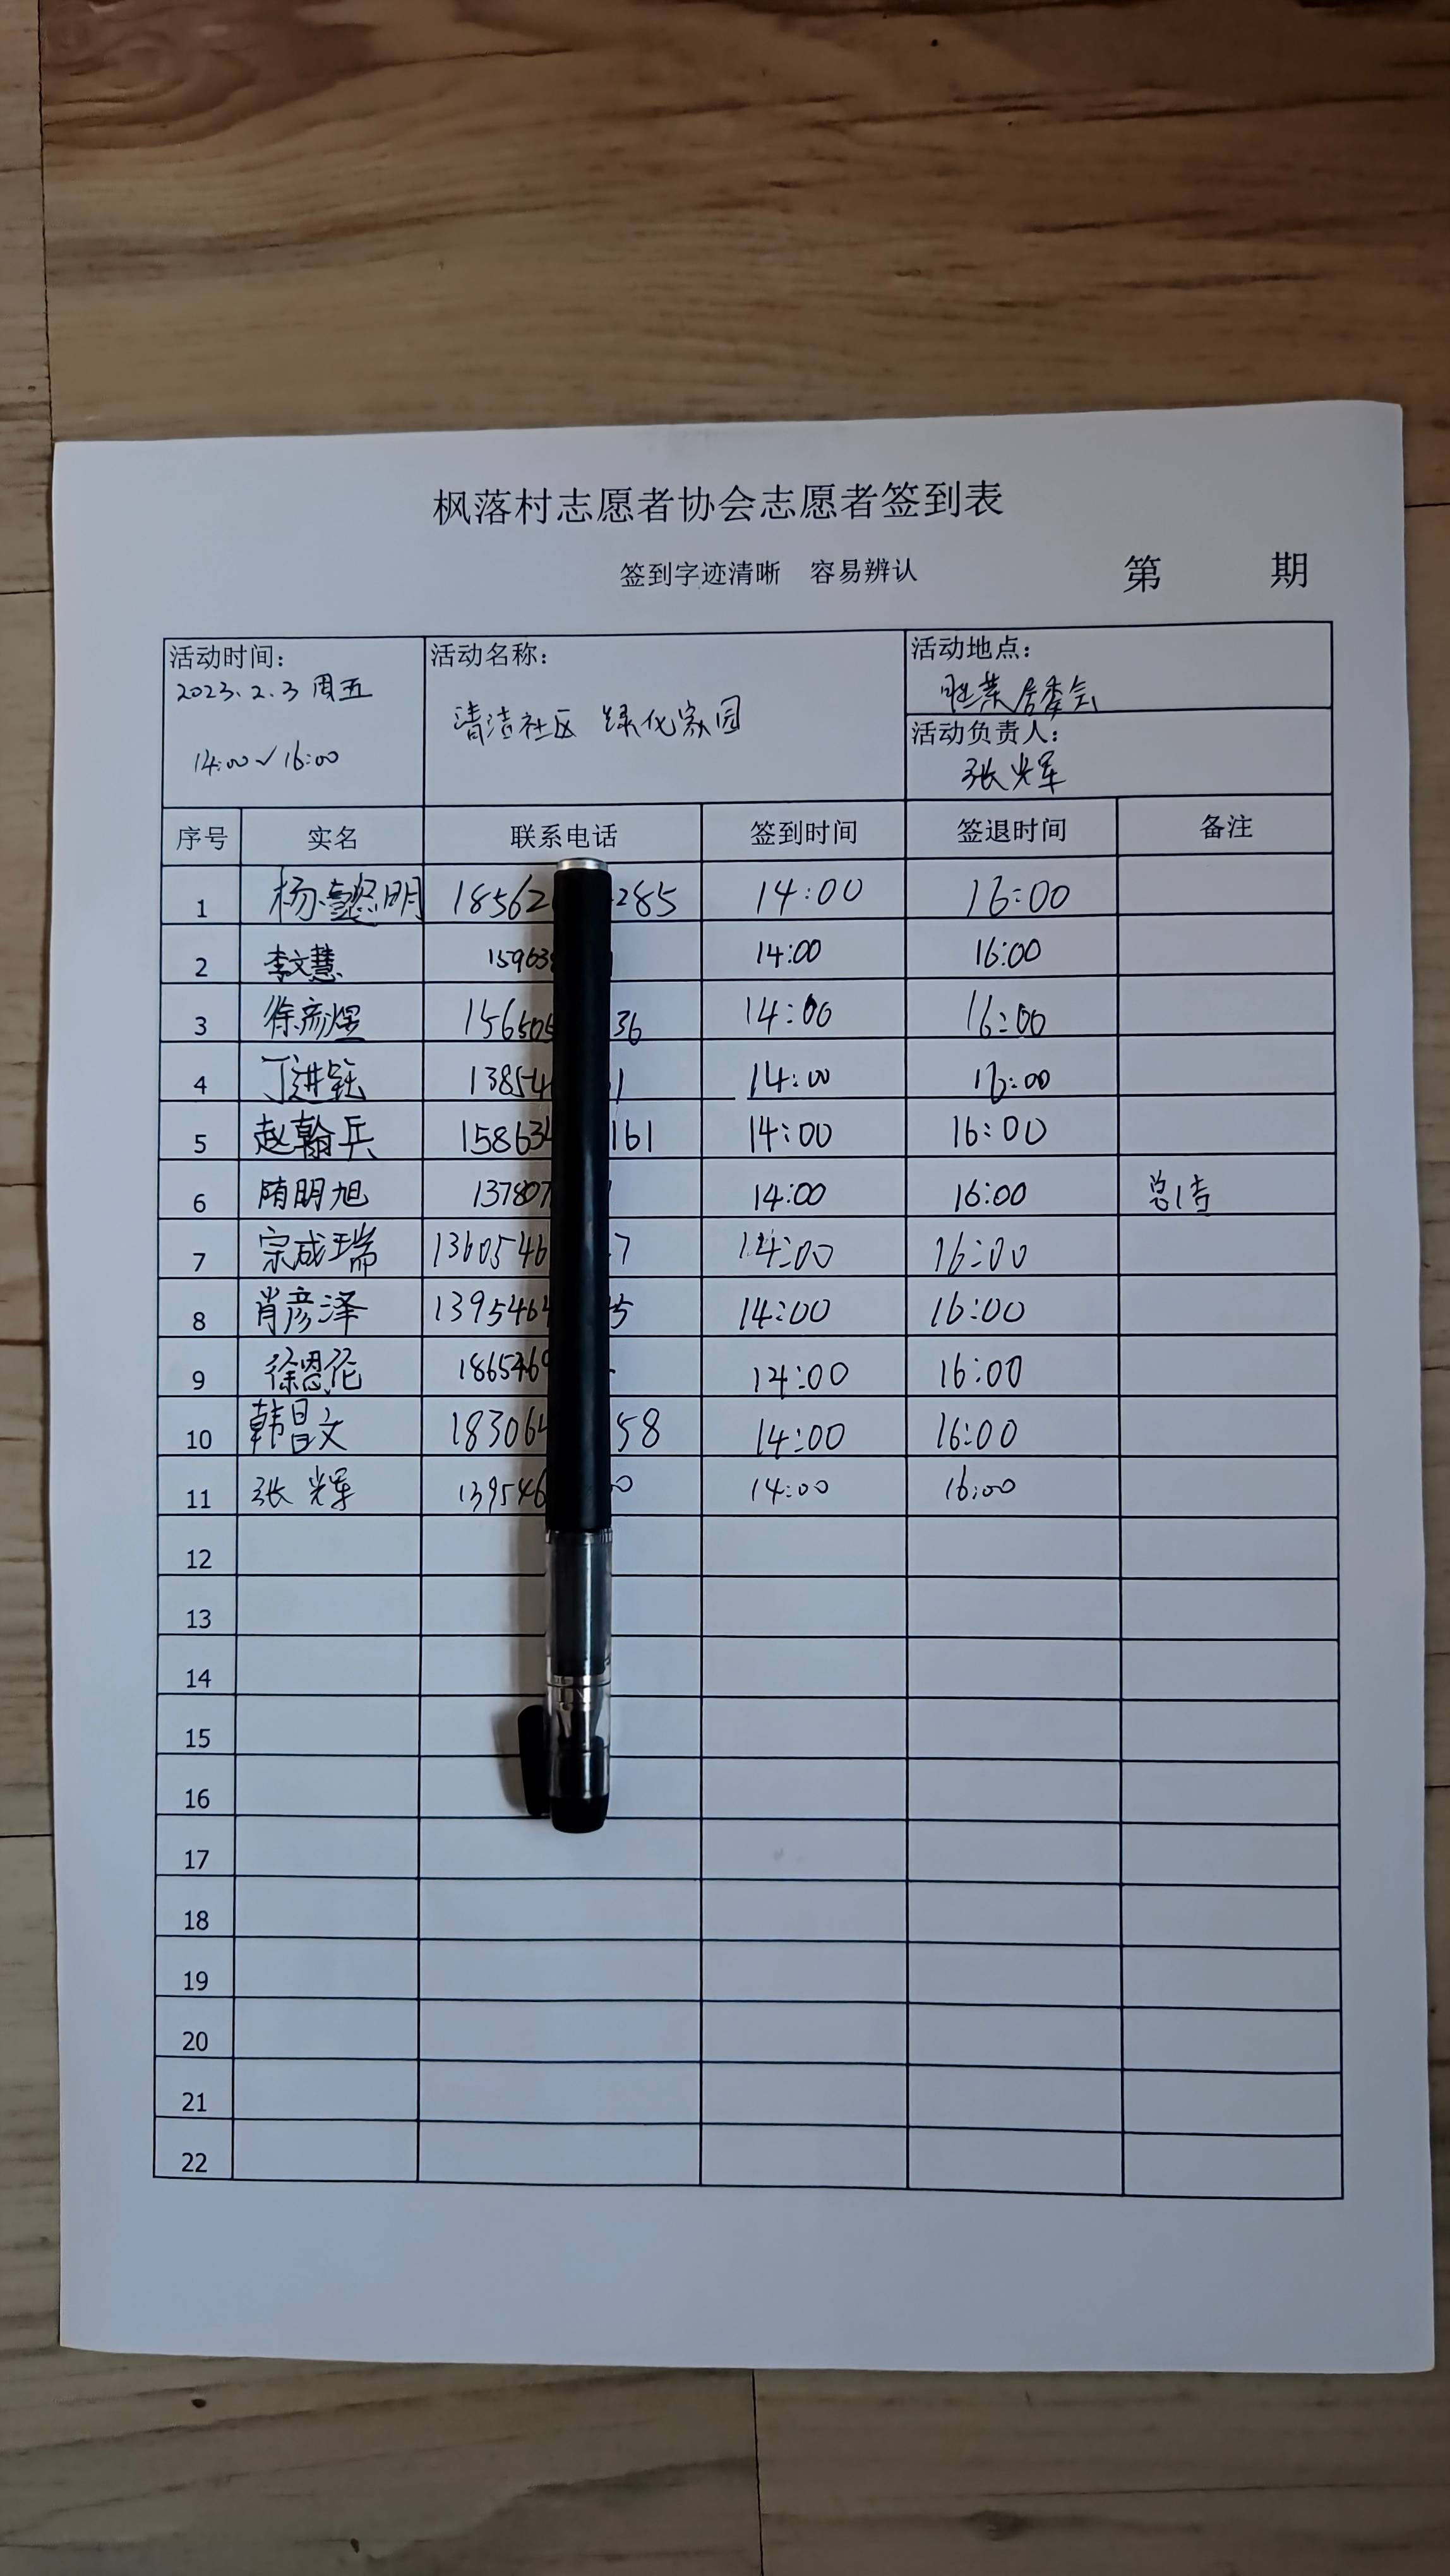 枫落村志愿者协会志愿者签到表
签到字迹清晰 容易辨认 第 期
活动时间： 活动名称： 活动地点：
2023.2.3 周五 清洁社区 绿化家园 居委会
14:00 16:00 活动负责人：
张光军
序号 实名 联系电话 签到时间 签退时间 备注
1 杨懿明 18562 285 14:00 16:00
2 李文慧 15963 14:00 16:00
3 徐彦煜 156505 36 14:00 16:00
4 丁进钰 13854 1 14:00 16:00
5 赵翰兵 158634 161 14:00 16:00
6 隋明旭 137807 14:00 16:00
7 宗成瑞 1360546 7 14:00 16:00
8 肖彦泽 1395464 5 14:00 16:00
9 徐恩伦 186546 14:00 16:00
10 韩昌文 183064 58 14:00 16:00
11 张光军 139546 0 14:00 16:00
12
13
14
15
16
17
18
19
20
21
22